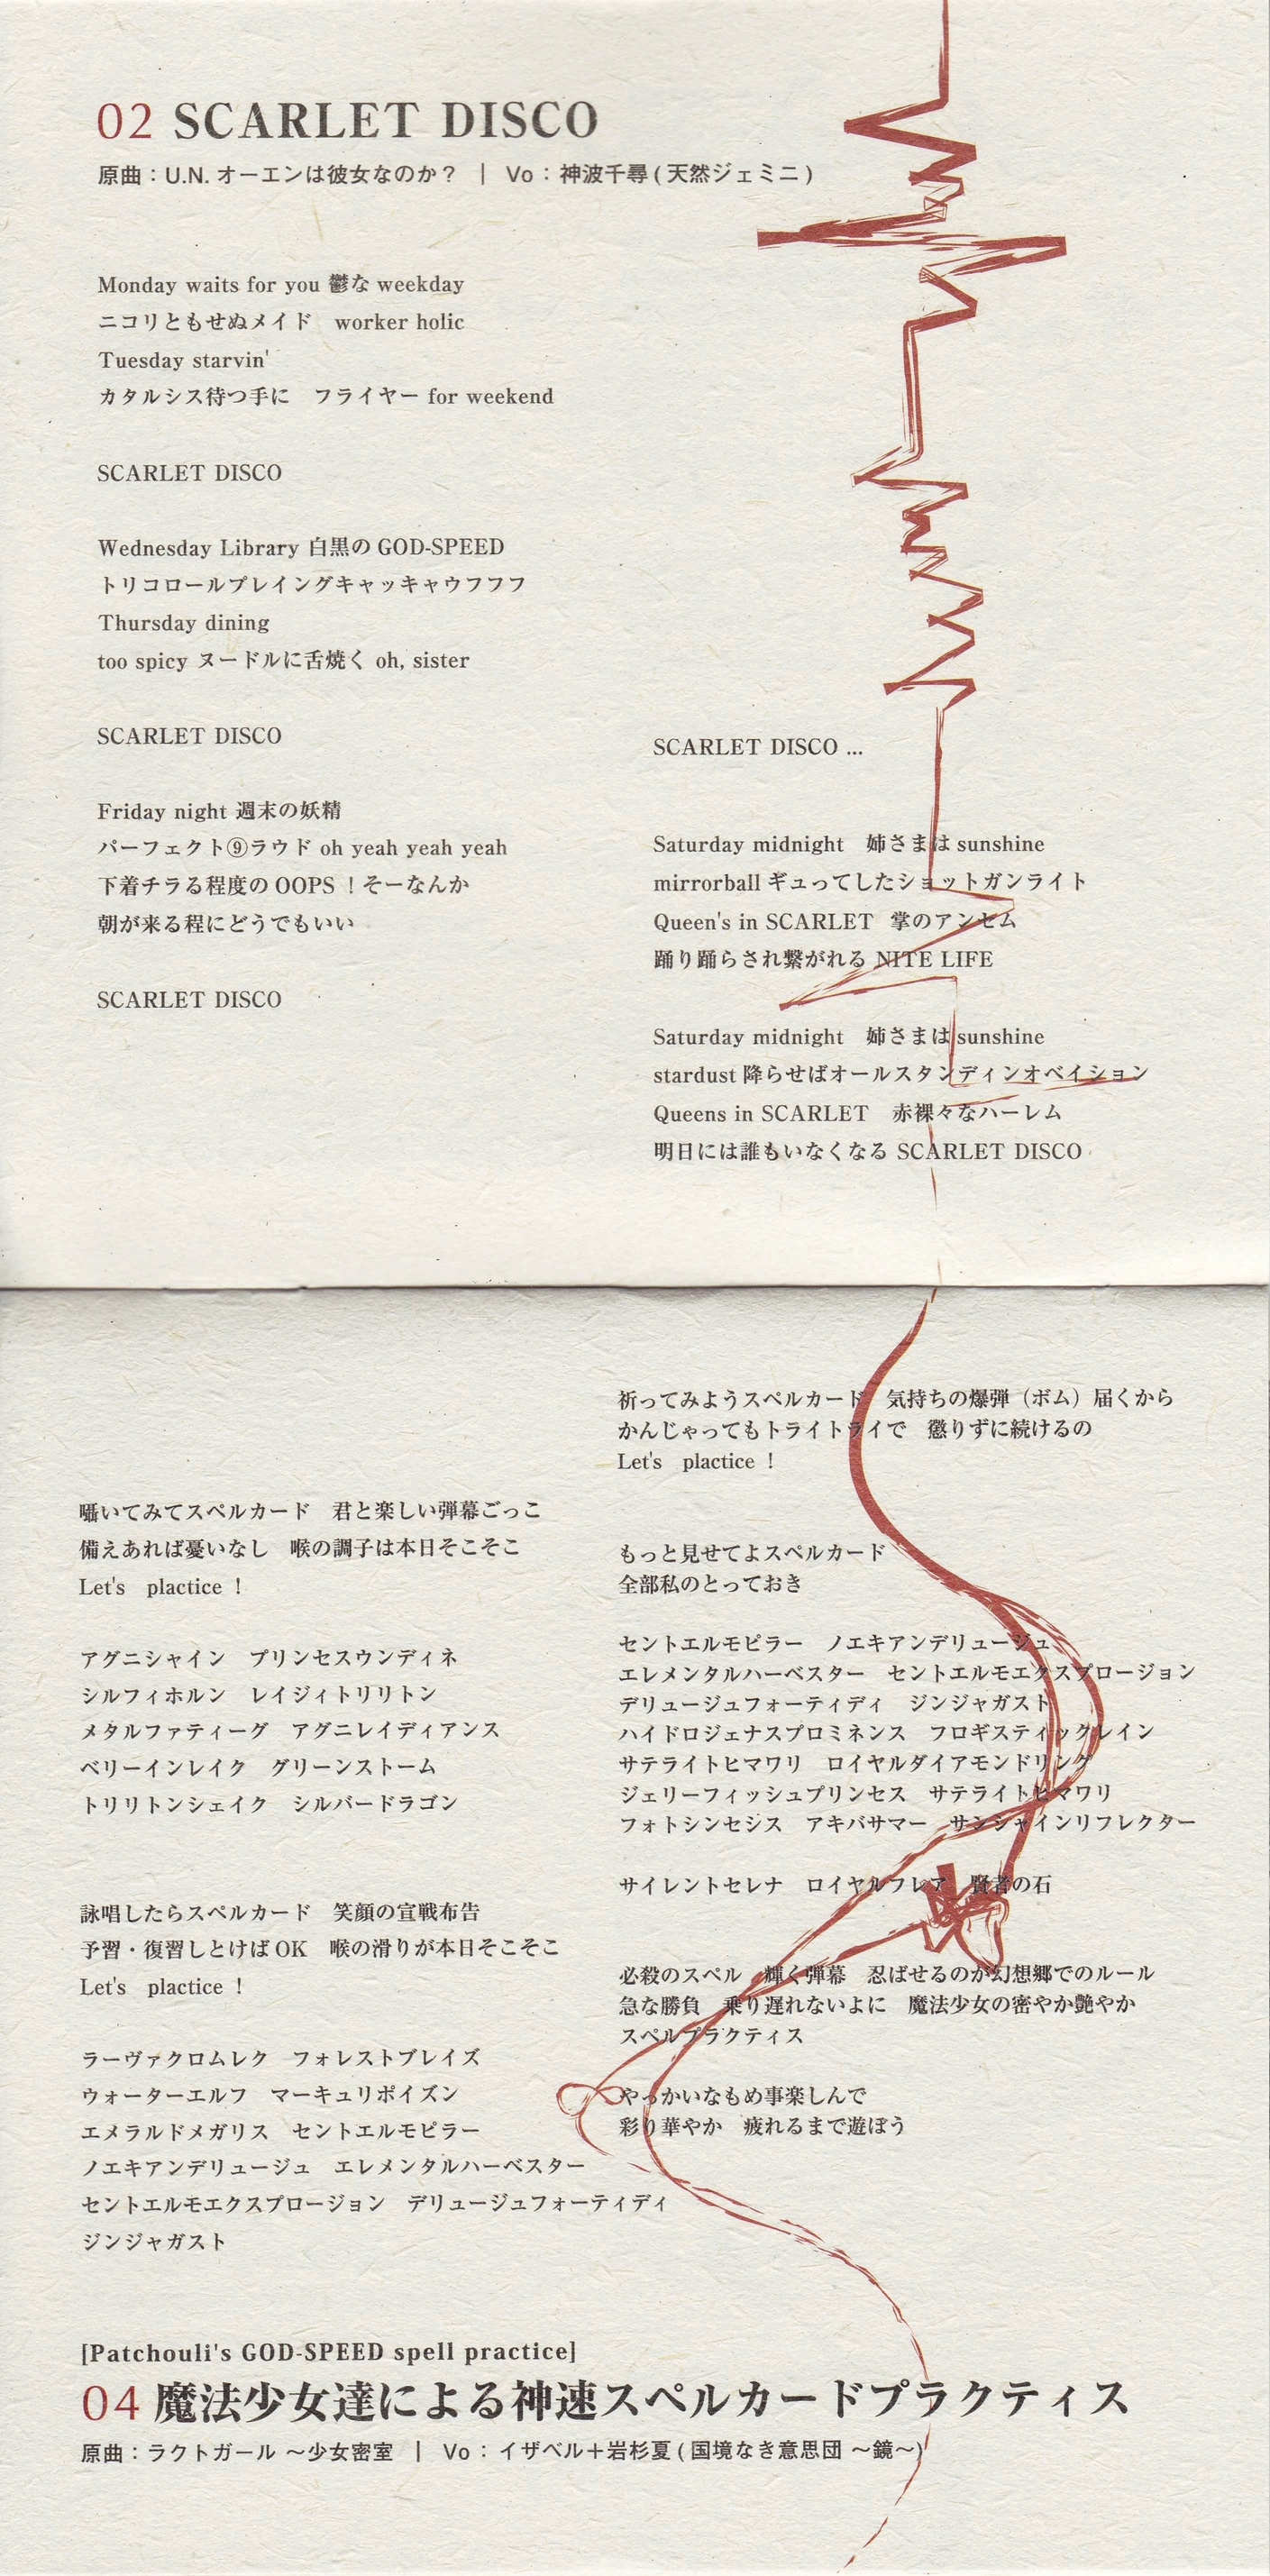 02 SCARLET DISCO
原曲：U.N. オーエンは彼女なのか？ ｜ Vo：神波千尋 ( 天然ジェミニ )
Monday waits for you 鬱な weekday
ニコリともせぬメイド　worker holic
Tuesday starvin'
カタルシス待つ手に　フライヤー for weekend
SCARLET DISCO
Wednesday Library 白黒の GOD-SPEED
トリコロールプレイングキャッキャウフフフ
Thursday dining
too spicy ヌードルに舌焼く oh, sister
SCARLET DISCO
Friday night 週末の妖精
パーフェクト⑨ラウド oh yeah yeah yeah
下着チラる程度の OOPS！そーなんか
朝が来る程にどうでもいい
SCARLET DISCO
SCARLET DISCO ...
Saturday midnight　姉さまは sunshine
mirrorball ギュってしたショットガンライト
Queen's in SCARLET　掌のアンセム
踊り踊らされ繋がれる NITE LIFE
Saturday midnight　姉さまは sunshine
stardust 降らせばオールスタンディンオベイション
Queens in SCARLET　赤裸々なハーレム
明日には誰もいなくなる SCARLET DISCO
囁いてみてスペルカード　君と楽しい弾幕ごっこ
備えあれば憂いなし　喉の調子は本日そこそこ
Let's　plactice！
アグニシャイン　プリンセスウンディネ
シルフィホルン　レイジィトリリトン
メタルファティーグ　アグニレイディアンス
ベリーインレイク　グリーンストーム
トリリトンシェイク　シルバードラゴン
詠唱したらスペルカード　笑顔の宣戦布告
予習・復習しとけば OK　喉の滑りが本日そこそこ
Let's　plactice！
ラーヴァクロムレク　フォレストブレイズ
ウォーターエルフ　マーキュリポイズン
エメラルドメガリス　セントエルモピラー
ノエキアンデリュージュ　エレメンタルハーベスター
セントエルモエクスプロージョン　デリュージュフォーティディ
ジンジャガスト
祈ってみようスペルカード　気持ちの爆弾（ボム）届くから
かんじゃってもトライトライで　懲りずに続けるの
Let's　plactice！
もっと見せてよスペルカード
全部私のとっておき
セントエルモピラー　ノエキアンデリュージュ
エレメンタルハーベスター　セントエルモエクスプロージョン
デリュージュフォーティディ　ジンジャガスト
ハイドロジェナスプロミネンス　フロギスティックレイン
サテライトヒマワリ　ロイヤルダイアモンドリング
ジェリーフィッシュプリンセス　サテライトヒマワリ
フォトシンセシス　アキバサマー　サンシャインリフレクター
サイレントセレナ　ロイヤルフレア　賢者の石
必殺のスペル　輝く弾幕　忍ばせるのが幻想郷でのルール
急な勝負　乗り遅れないよに　魔法少女の密やか艶やか
スペルプラクティス
やっかいなもめ事楽しんで
彩り華やか　疲れるまで遊ぼう
[Patchouli's GOD-SPEED spell practice]
04 魔法少女達による神速スペルカードプラクティス
原曲：ラクトガール ～少女密室 ｜ Vo：イザベル＋岩杉夏 ( 国境なき意思団 ～鏡～)